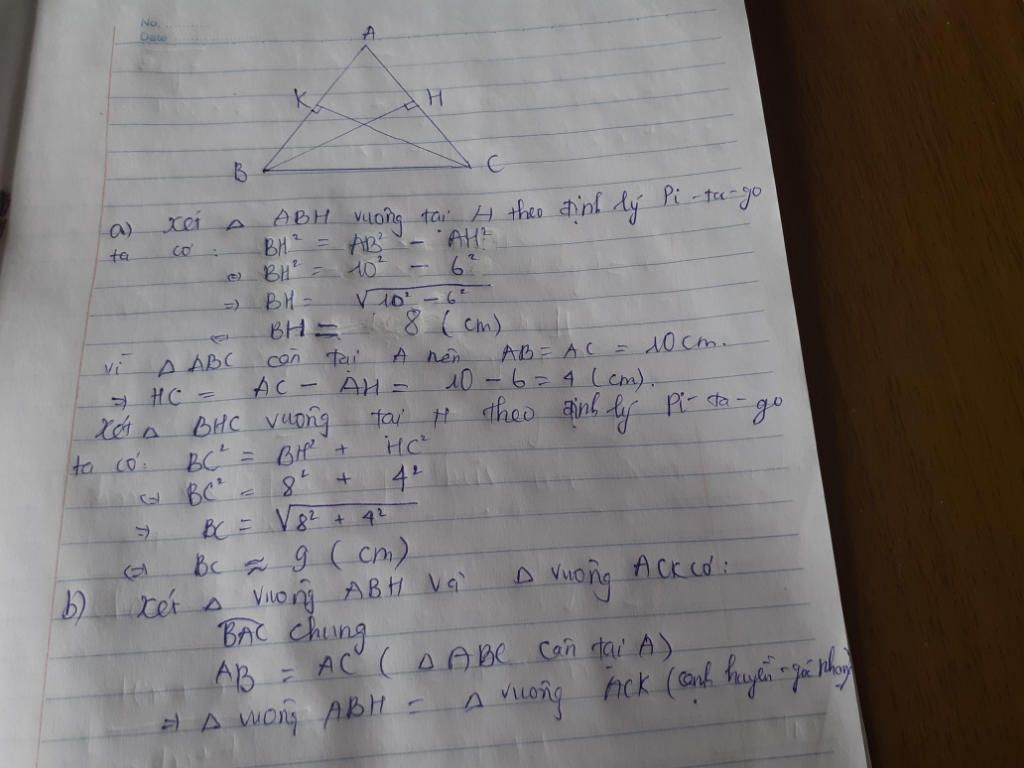 No.
Date
A
K H
B C
a) Xét Δ ABH vuông tại H theo định lý Pi-ta-go
ta có: BH² = AB² - AH²
⇔ BH² = 10² - 6²
⇒ BH = √10² - 6²
⇔ BH = 8 (cm)
vì Δ ABC cân tại A nên AB = AC = 10cm.
⇒ HC = AC - AH = 10 - 6 = 4 (cm).
Xét Δ BHC vuông tại H theo định lý Pi-ta-go
ta có: BC² = BH² + HC²
⇔ BC² = 8² + 4²
⇒ BC = √8² + 4²
⇔ BC ≈ 9 (cm)
b) Xét Δ vuông ABH và Δ vuông ACK có:
BAC chung
AB = AC (Δ ABC cân tại A)
⇒ Δ vuông ABH = Δ vuông ACK (cạnh huyền - góc nhọn)